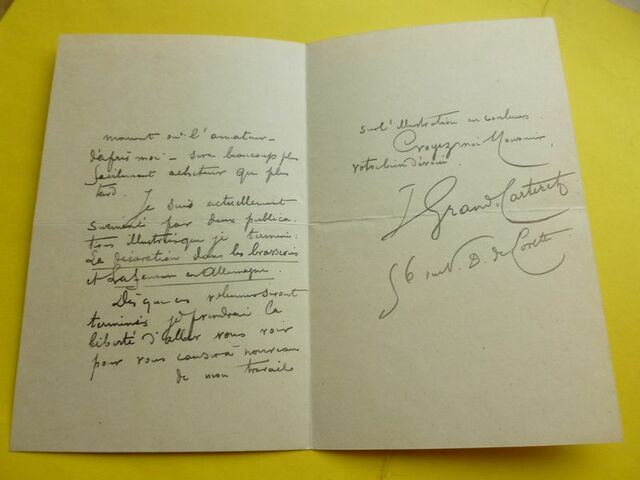 moment où l'amateur -
d'après moi - sera beaucoup plus
facilement acheteur que plus
tard.
Je suis actuellement
surmené par deux publica
tions illustrées que je termine.
La décoration dans les brasseries
et La femme en Allemagne.
Dès que ces volumes seront
terminés je prendrai la
liberté d'aller vous voir
pour vous causer à nouveau
de mon travail
sur l'illustration en couleurs.
Croyez moi Monsieur,
votre bien dévoué.
J Grand-Carteret
56 rue N. D. de Lorette